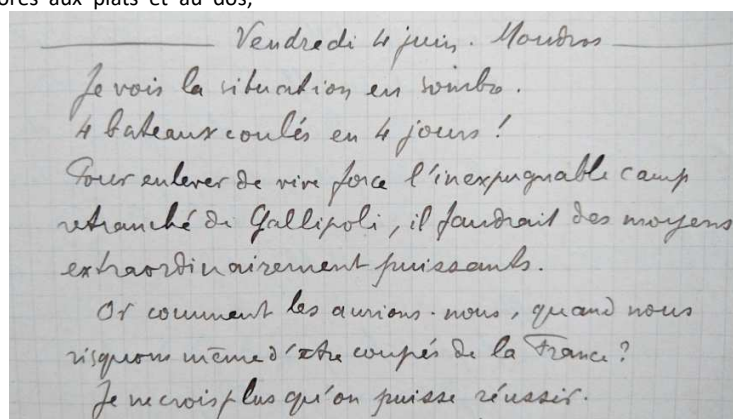 aux plats et au dos,
Vendredi 4 juin. Moudros
Je vois la situation en sombre.
4 bateaux coulés en 4 jours !
Pour enlever de vive force l'inexpugnable camp
retranché de Gallipoli, il faudrait des moyens
extraordinairement puissants.
Or comment les aurions-nous, quand nous
risquons même d'être coupés de la France ?
Je ne crois plus qu'on puisse réussir.